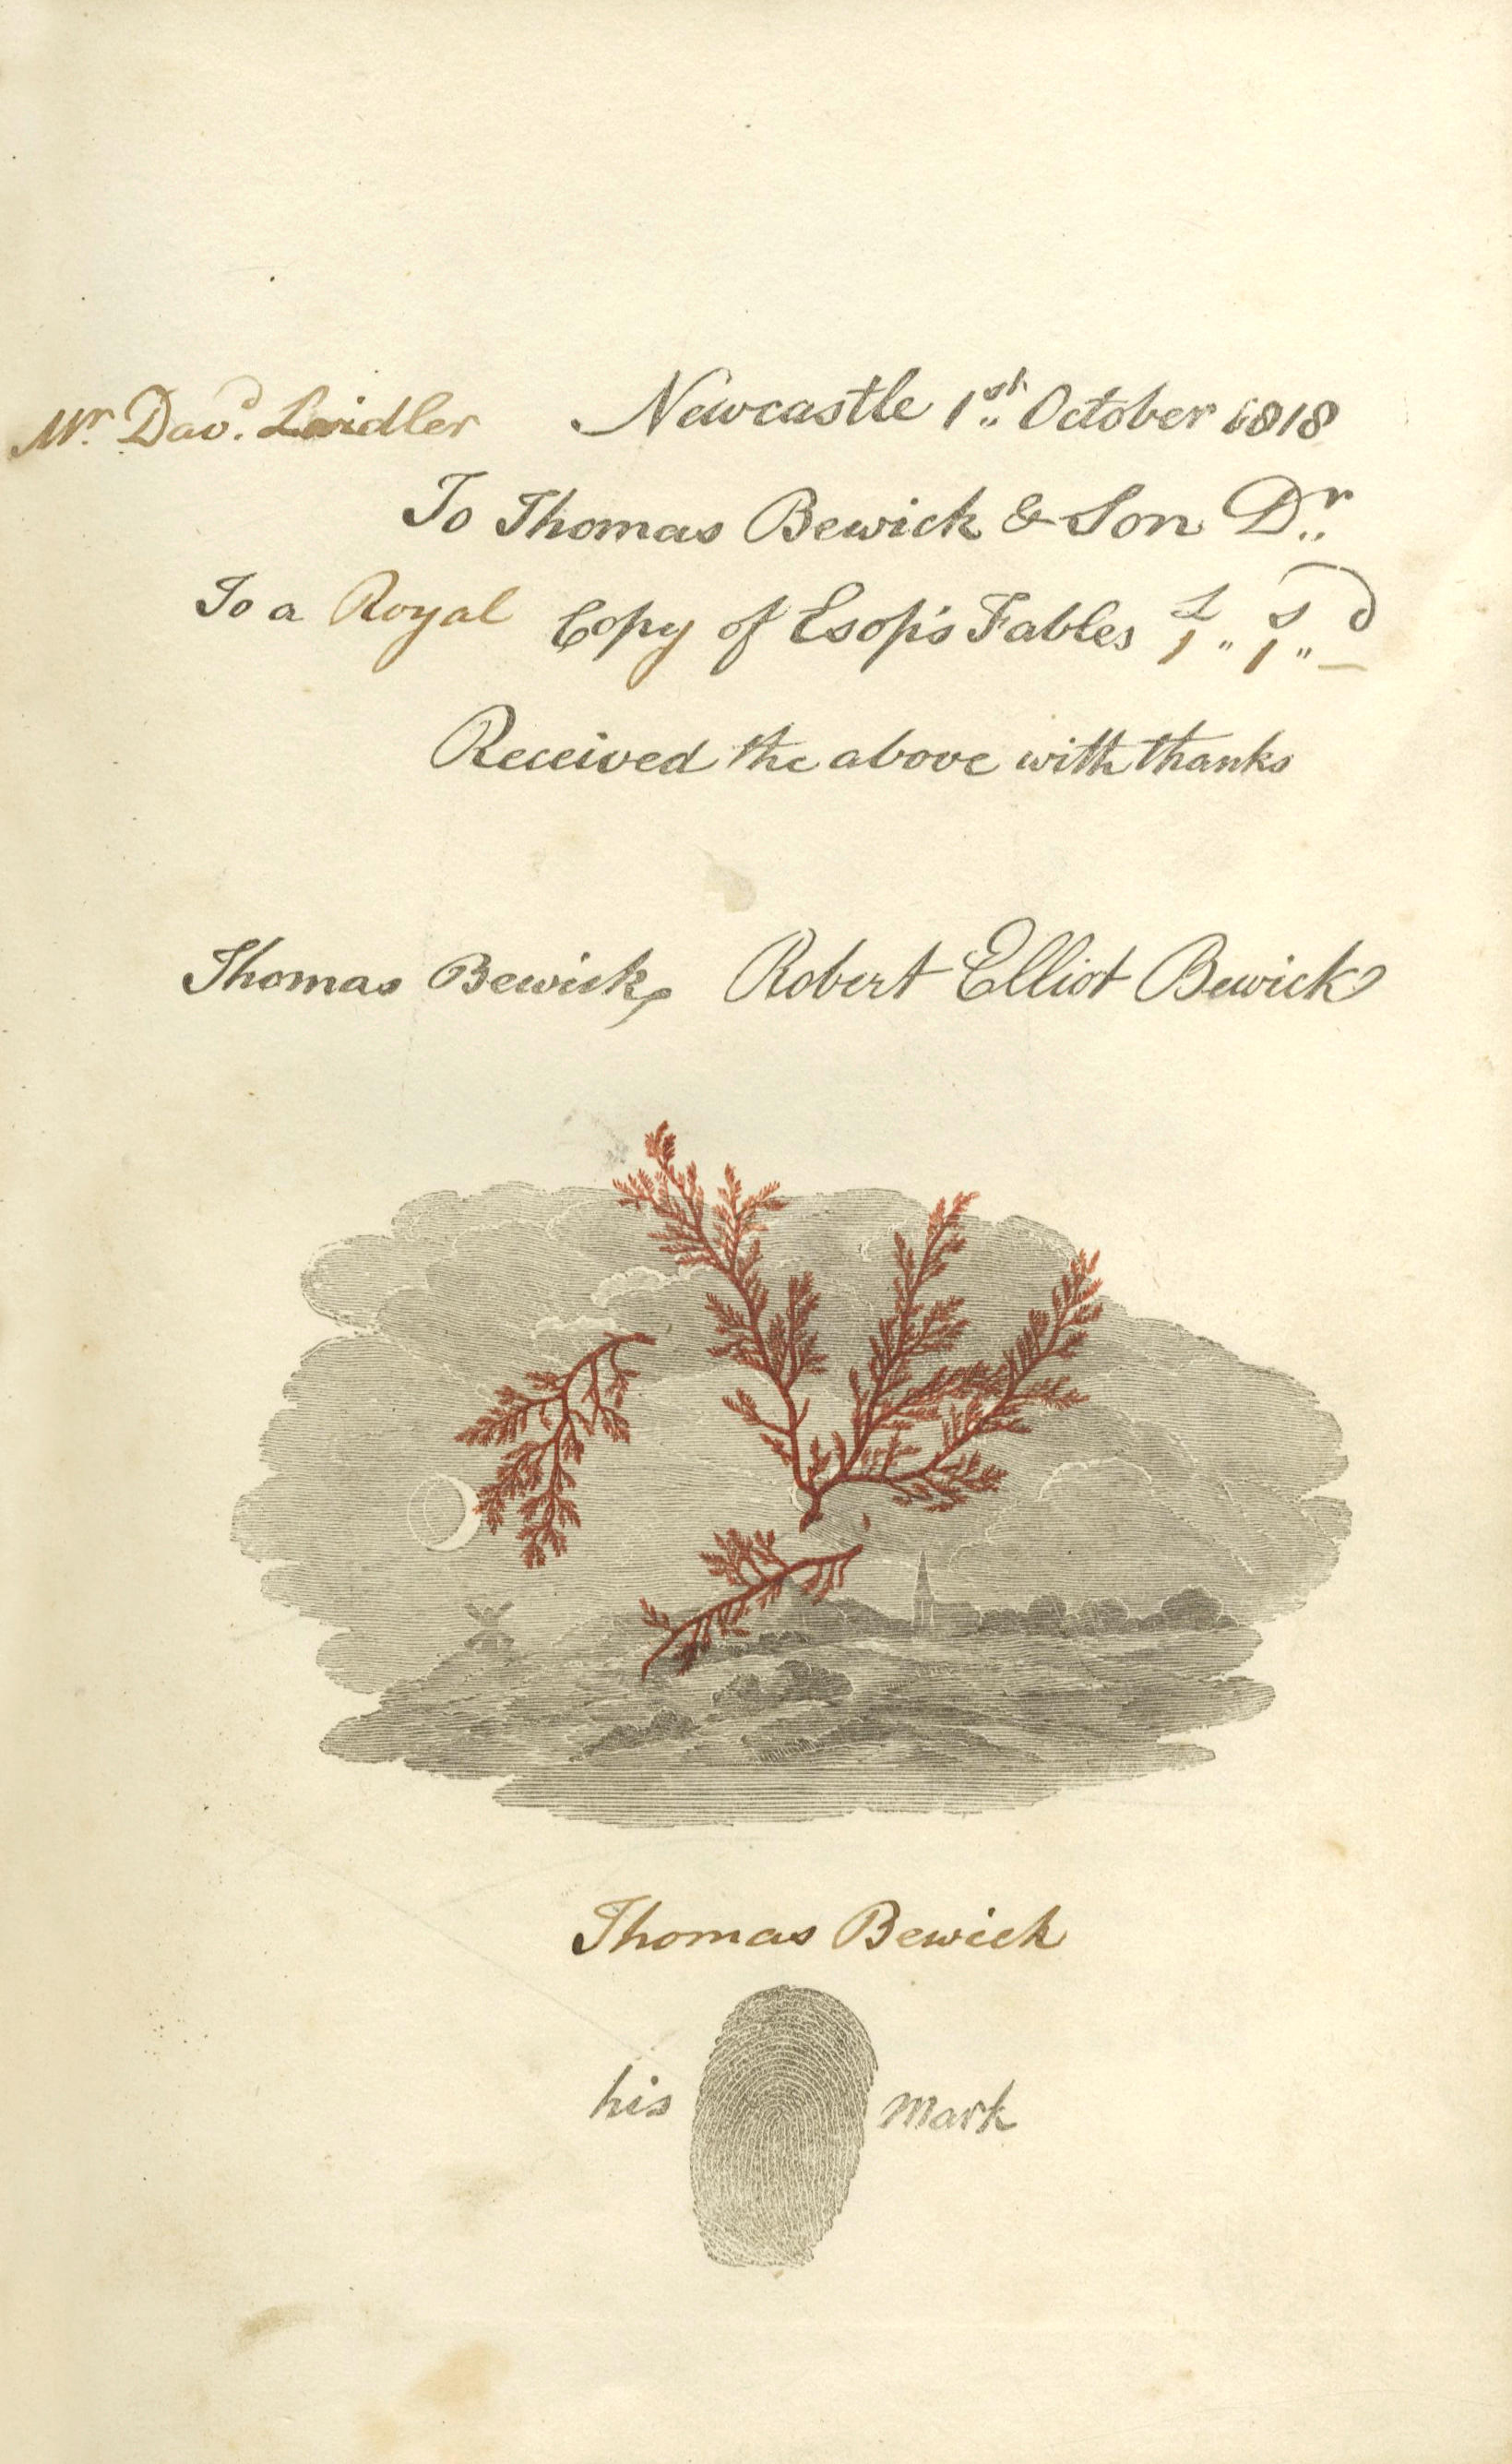 Mr. Davd. Laidler Newcastle 1st. October 1818
To Thomas Bewick & Son Dr.
To a Royal Copy of Esop's Fables £ 1 " s 1 " d —
Received the above with thanks
Thomas Bewick, Robert Elliot Bewick
Thomas Bewick
his mark